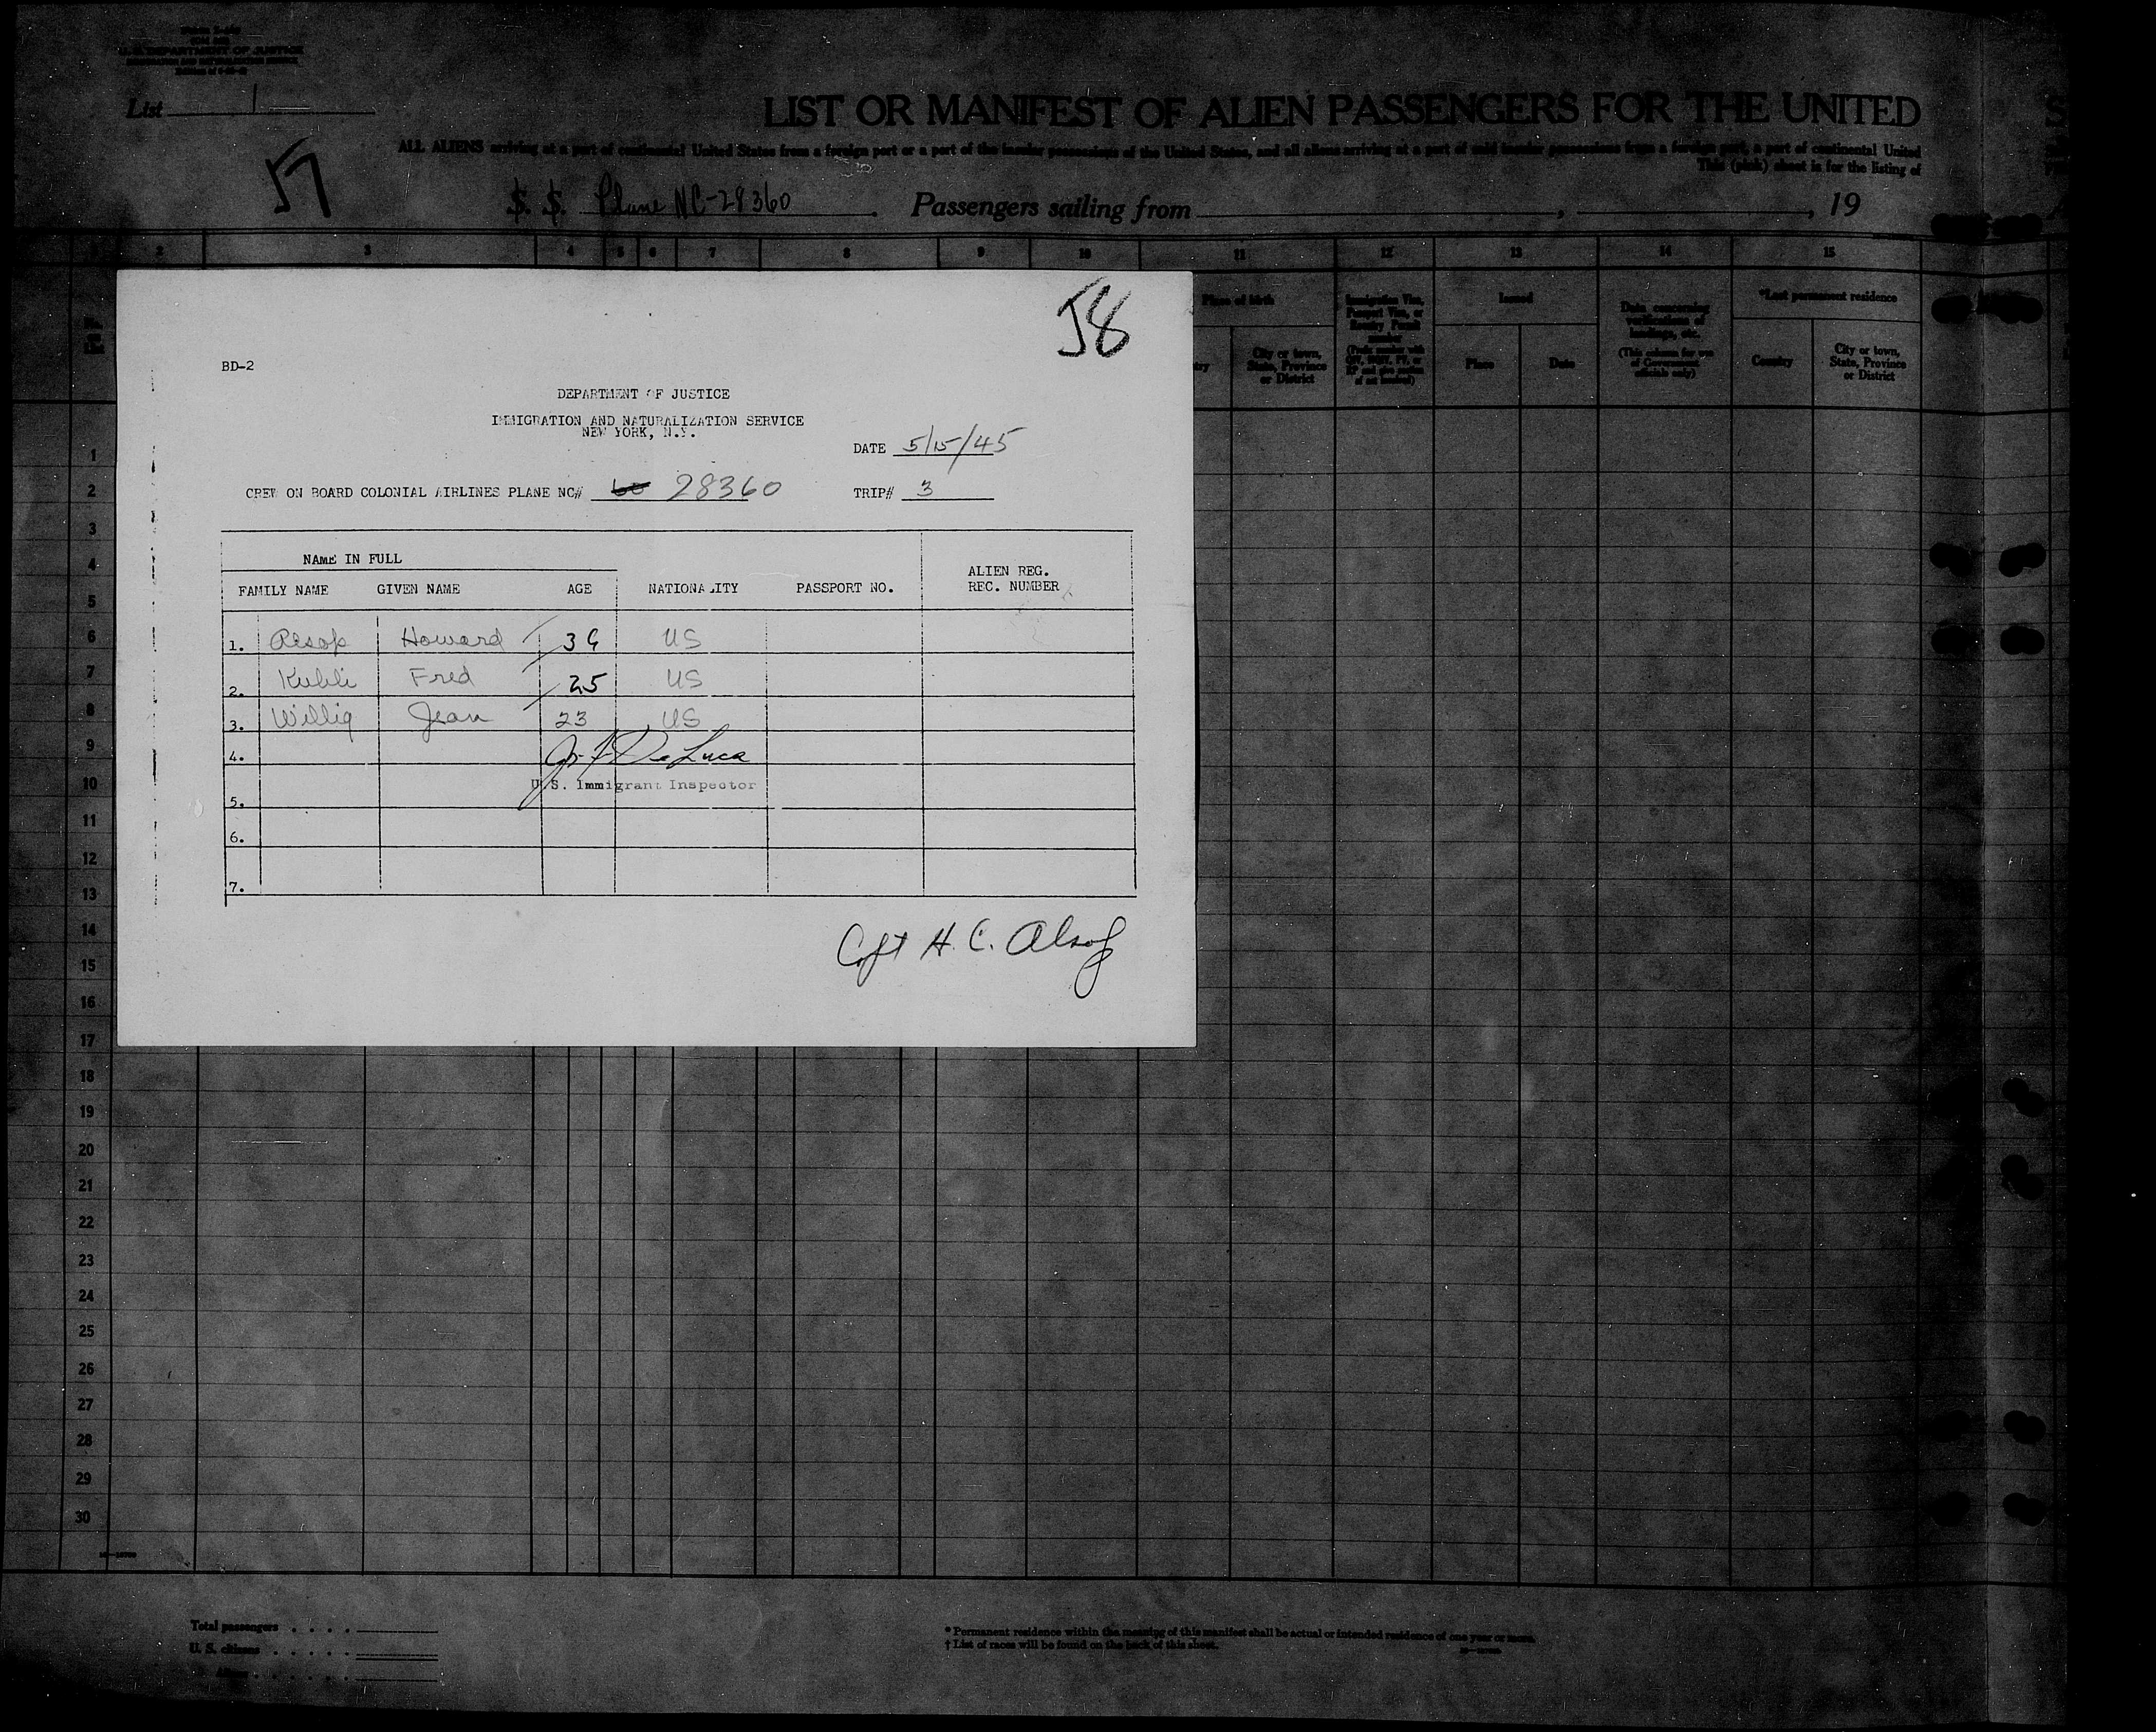 U. S. DEPARTMENT OF JUSTICE
List 1
LIST OR MANIFEST OF ALIEN PASSENGERS FOR THE UNITED
ALL ALIENS arriving at a port of continental United States from a foreign port or a port of the insular possessions of the United States, and all aliens arriving at a port of said insular possessions from a foreign port, a port of continental United
This (pink) sheet is for the listing of
57
S. S. Plane NC-28360 Passengers sailing from , , 19
2 3 4 5 6 7 8 9 10 11 12 13 14 15
Place of birth
Issued
*Last permanent residence
City or town, State, Province or District
Place
Date
(This column for use of Government officials only)
Country
City or town, State, Province or District
58
BD-2
DEPARTMENT OF JUSTICE
IMMIGRATION AND NATURALIZATION SERVICE
NEW YORK, N.Y.
DATE 5/15/45
CREW ON BOARD COLONIAL AIRLINES PLANE NC# 28360 TRIP# 3
NAME IN FULL
FAMILY NAME GIVEN NAME AGE NATIONALITY PASSPORT NO. ALIEN REG. REC. NUMBER
1. Alsop Howard 36 US
2. Kuhli Fred 25 US
3. Willig Jean 23 US
4. De Luca
U.S. Immigrant Inspector
5.
6.
7.
Cpt H. C. Alsop
1
2
3
4
5
6
7
8
9
10
11
12
13
14
15
16
17
18
19
20
21
22
23
24
25
26
27
28
29
30
Total passengers . . . .
U. S. citizens . . . . .
Aliens . . . . . .
* Permanent residence within the meaning of this manifest shall be actual or intended residence of one year or more.
† List of races will be found on the back of this sheet.